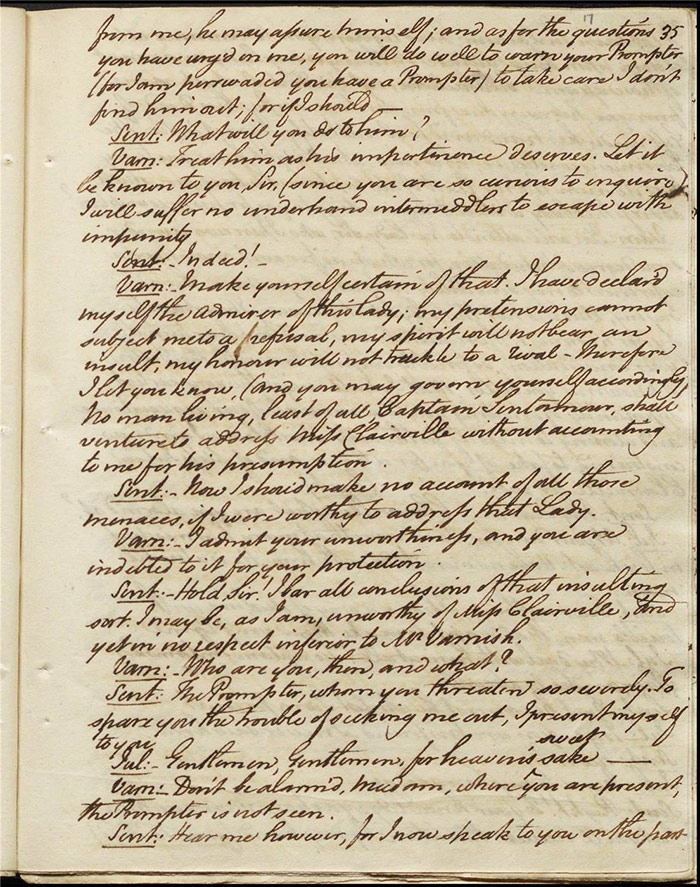 17
from me, he may assure himself; and as for the questions 35
you have urg'd on me, you will do well to warn your Prompter
(for I am perswaded you have a Prompter) to take care I don't
find him out; for if I should —
Sent: What will you do to him?
Varn: Treat him as his impertinence deserves. Let it
be known to you, Sir, (since you are so curious to enquire)
I will suffer no underhand intermeddlers to escape with
impunity
Sent: - Indeed! -
Varn: - Make yourself certain of that. I have declar'd
myself the admirer of this lady; my pretensions cannot
subject me to a refusal, my spirit will not bear an
insult, my honour will not truckle to a rival - Therefore
I let you know, (and you may govern yourself accordingly,)
No man living, least of all Captain Sentamour, shall
venture to address Miss Clairville without accounting
to me for his presumption.
Sent: - Now I shou'd make no account of all those
menaces, if I were worthy to address that Lady.
Varn: - I admit your unworthiness, and you are
indebted to it for your protection.
Sent: - Hold, Sir! I bar all conclusions of that insulting
sort. I may be, as I am, unworthy of Miss Clairville, and
yet in no respect inferior to Mr Varnish.
Varn: - Who are you, then, and what?
Sent: The Prompter, whom you threaten so severely. To
spare you the trouble of seeking me out, I present myself
to you
Jul: - Gentlemen, Gentlemen, for heaven's sweet sake —
Varn: - Don't be alarm'd, Madam, where you are present,
the Prompter is not seen.
Sent: Hear me however, for I now speak to you on the part